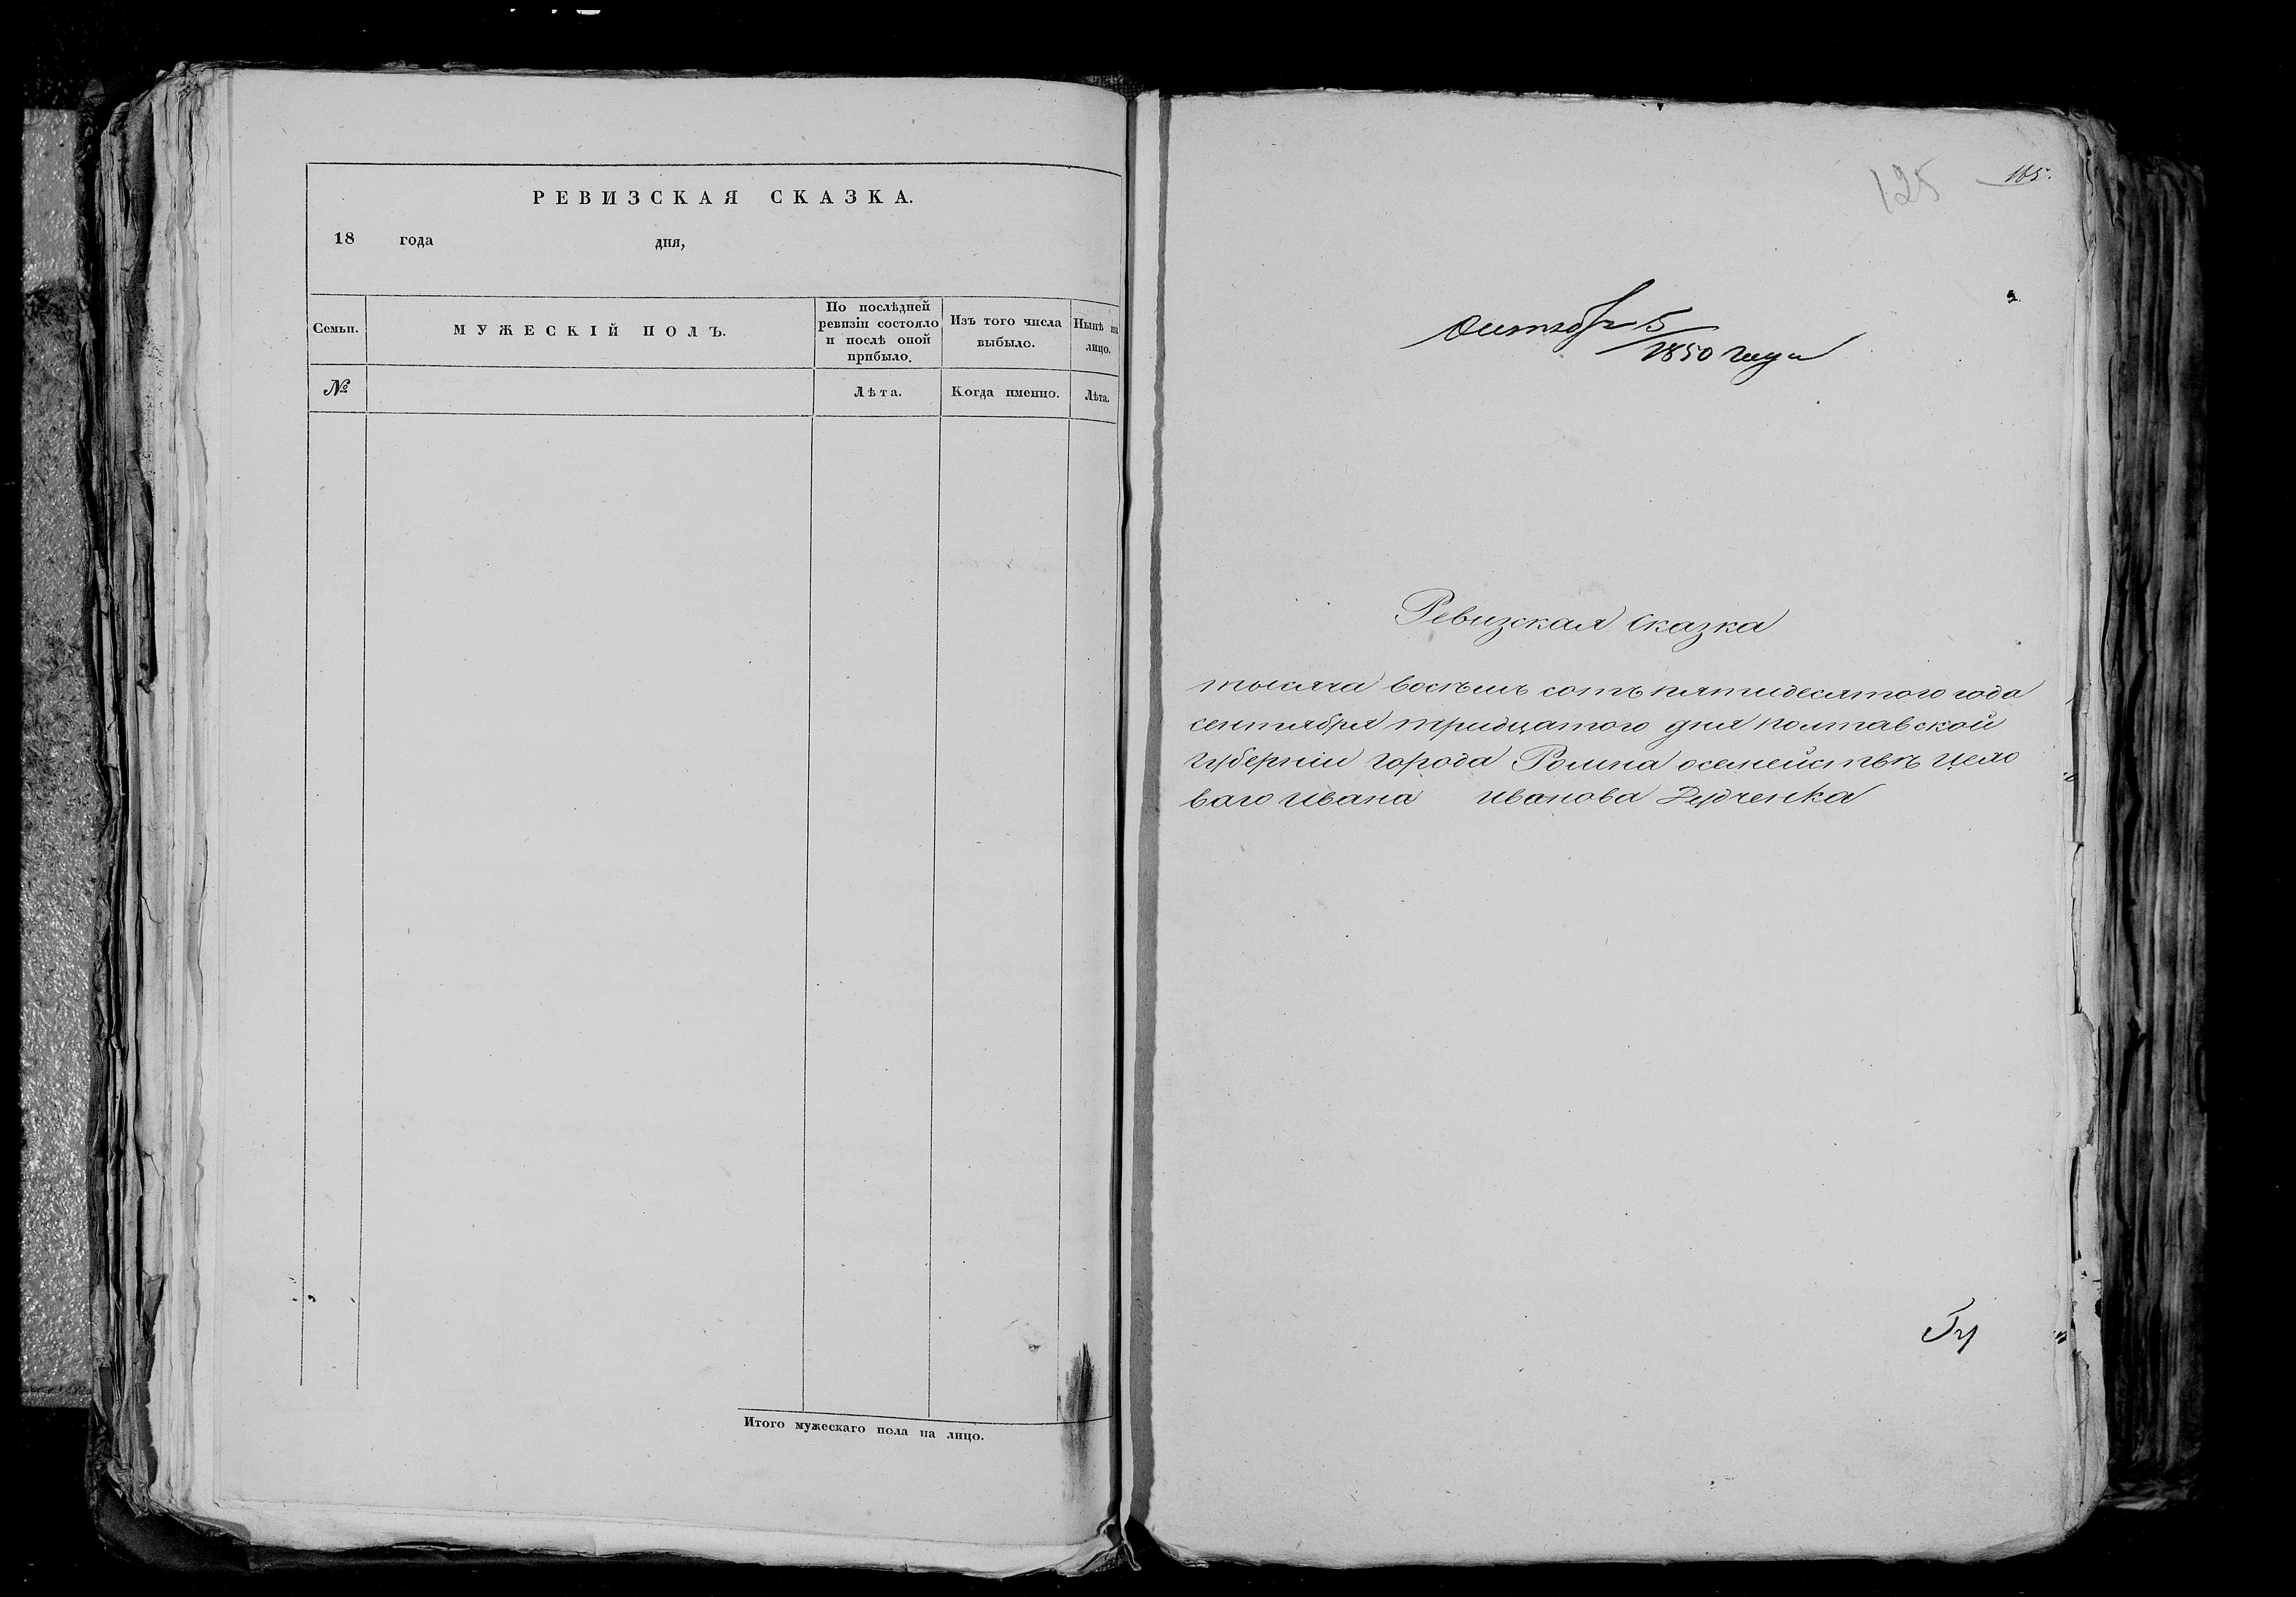 РЕВИЗСКАЯ СКАЗКА.
18 года дня,
Семьи.
МУЖЕСКІЙ ПОЛЪ.
По послѣдней
ревизіи состояло
и послѣ оной
прибыло.
Изъ того числа
выбыло.
Нынѣ на
лицо.
№
Лѣта.
Когда именно.
Лѣта.
Итого мужескаго пола на лицо.
125
165.
Октября 5
1850 года
Ревизская Сказка
тысяча восѣмь сотъ пятидесятого года
сентября тридцатого дня полтавской
губерніи города Ромна осемействѣ цехо
ваго Ивана Иванова Дудченка